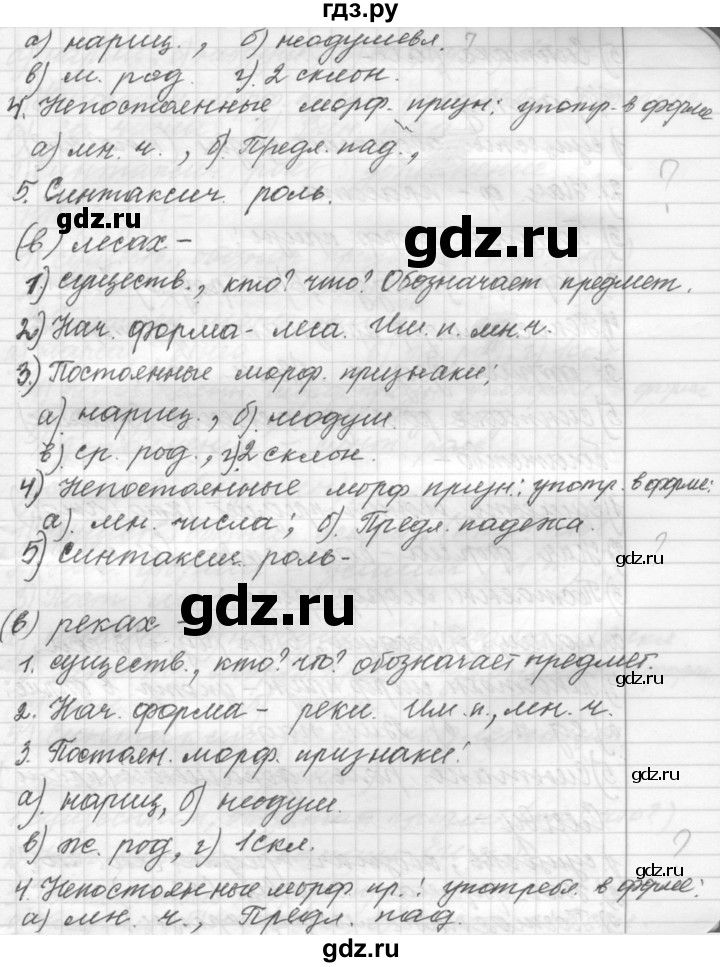 гдз.ру
а) нариц., б) неодушевл. ?
в) м. род. г). 2 склон.
4. Непостоянные морф. призн: употр. в форме
а) мн. ч., б). Предл. пад.,
5. Синтаксич. роль. ?
gdz.ru
(в) лесах –
gdz.ru
1.) существ., кто? что? Обозначает предмет.
2) Нач. форма – леса. Им. п. мн. ч.
3.) Постоянные морф. признаки:
а) нариц., б). неодуш.
в). ср. род., г). 2 склон.
4) Непостоянные морф призн: употр. в форме:
а). мн. числа; б). Предл. падежа.
5) Синтаксич. роль – ?
gdz.ru
(в) реках –
gdz.ru
1. существ., кто? что? обозначает предмет.
gdz.ru
2. Нач. форма – реки. Им. п., мн. ч.
3. Постоян. морф. признаки:
gdz.ru
а). нариц, б) неодуш.
в) ж. род, г) 1 скл. ?
4. Непостоянные морф пр.: употребл. в форме:
а) мн. ч., Предл. пад.
gdz.ru
gdz.ru
gdz.ru